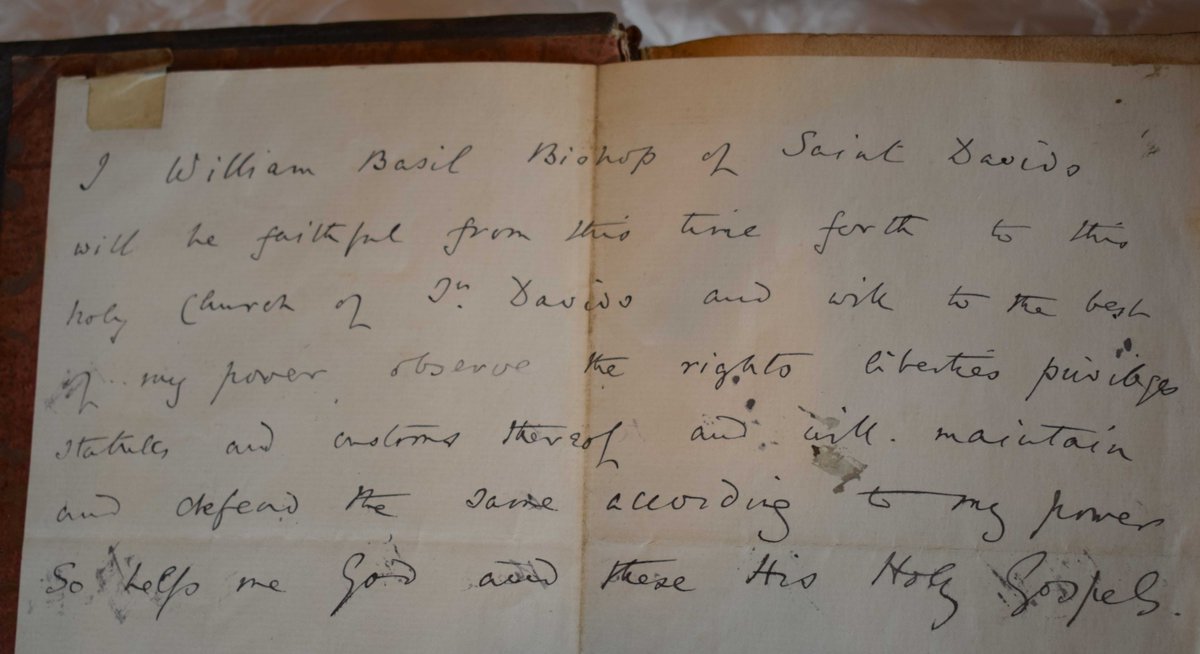 I William Basil Bishop of Saint Davids
will be faithful from this time forth to this
holy Church of St. Davids and will to the best
of my power observe the rights liberties privileges
statutes and customs thereof and will maintain
and defend the same according to my power
So help me God and these His Holy Gospels.